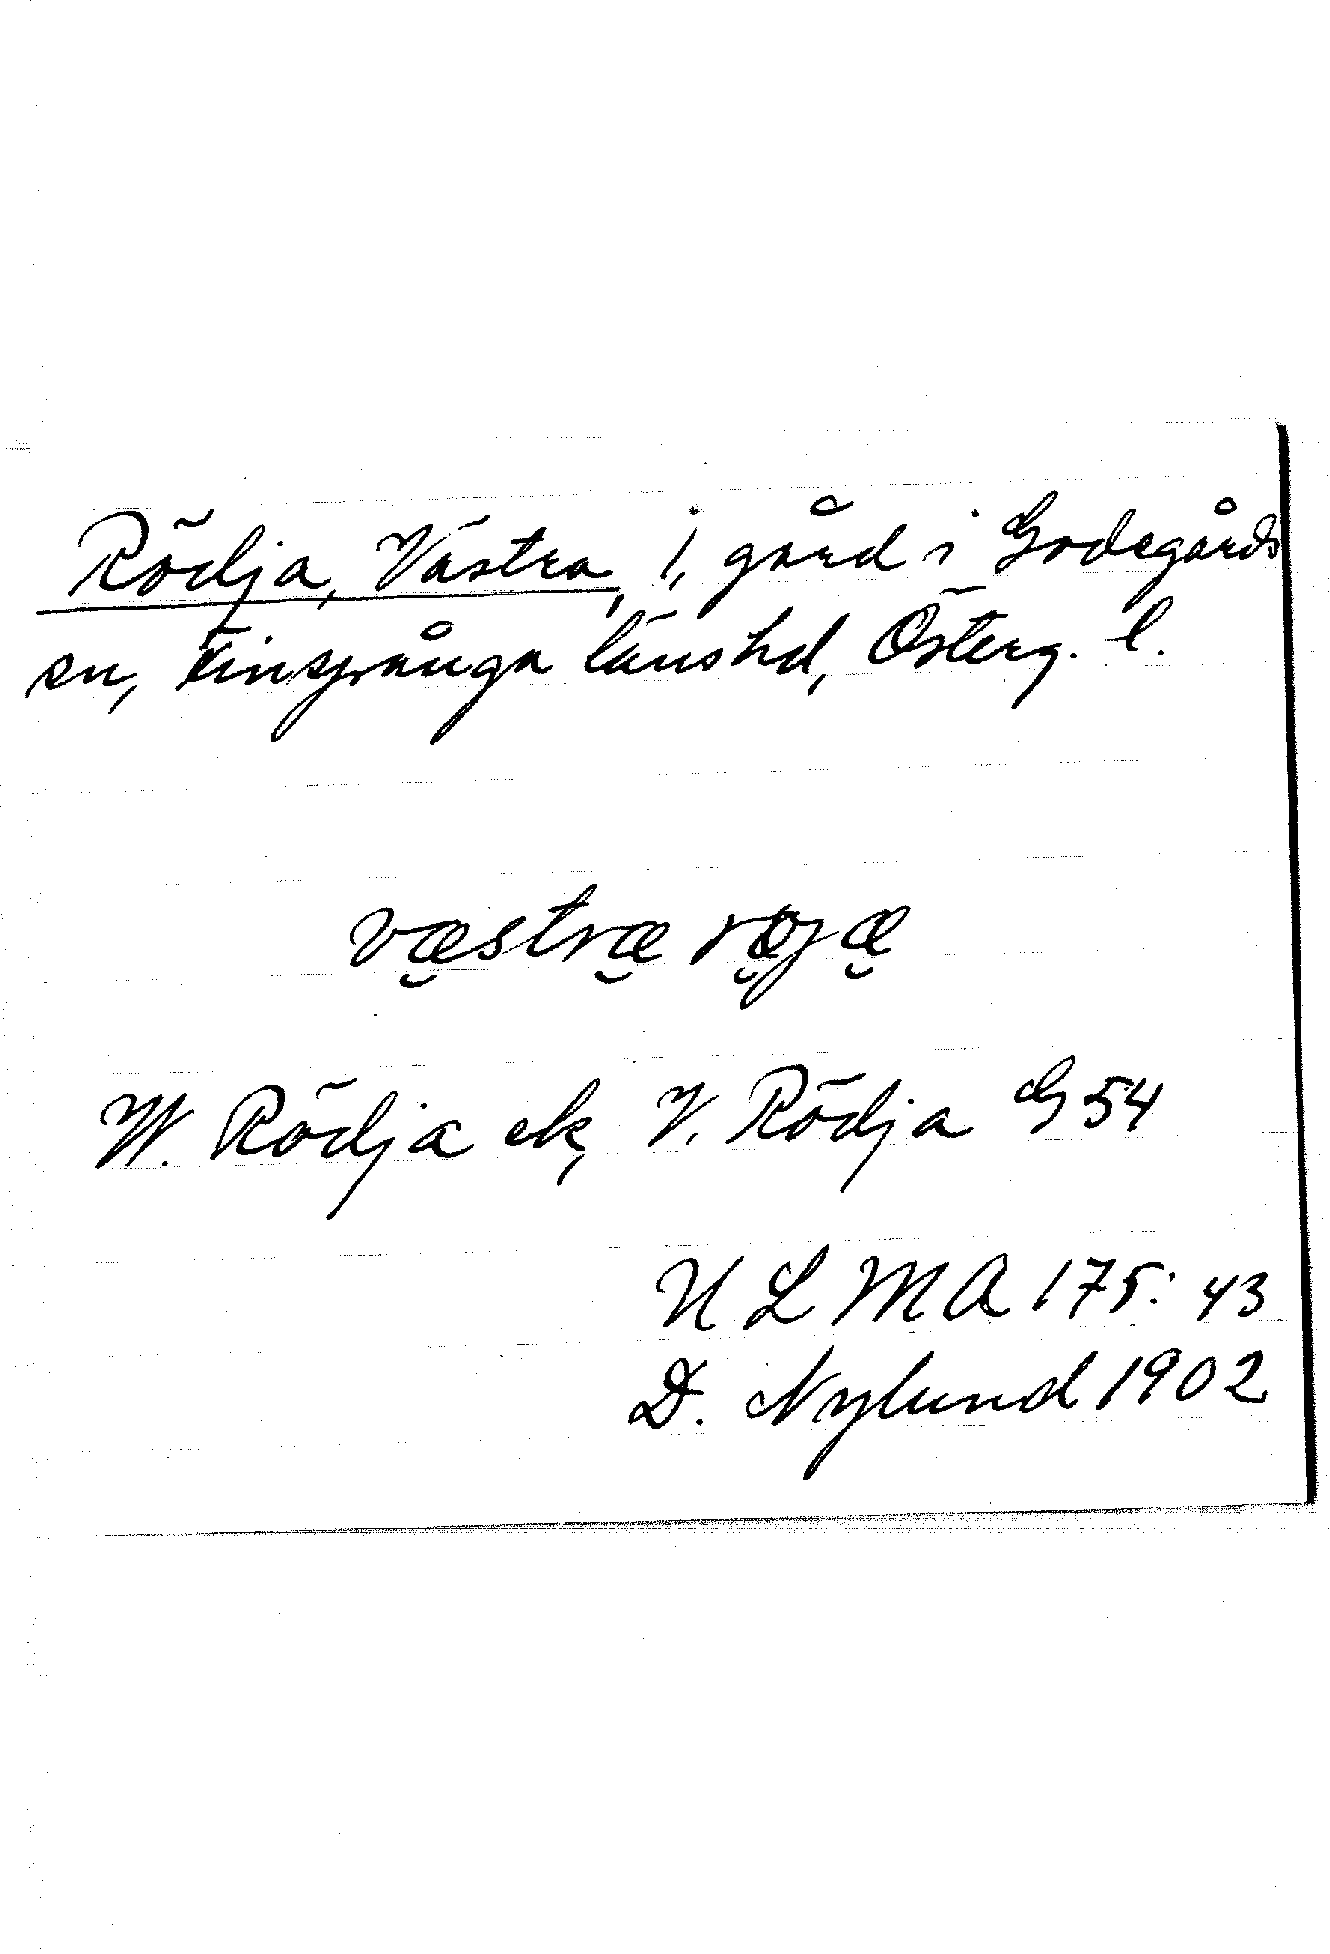 Rödja, Västra, 1, gård i Godegårds
sn, Finspånga länshd, Österg. l.
væstræ røjæ
W. Rödja ek, V. Rödja G 54
ULMA 175:43
D. Nylund 1902